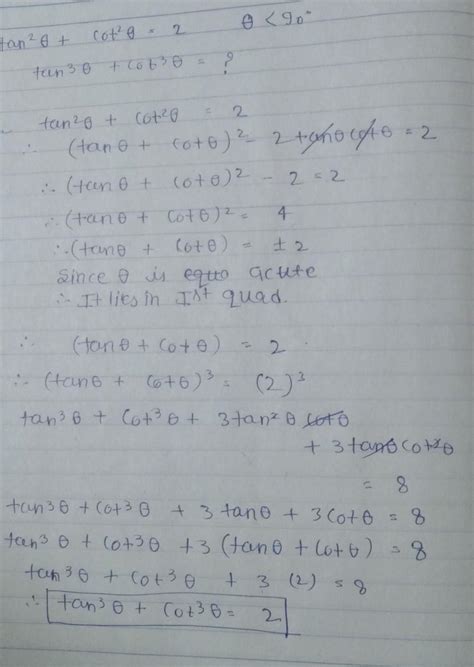 tan²θ + cot²θ = 2 θ < 90°
tan³θ + cot³θ = ?
tan²θ + cot²θ = 2
∴ (tanθ + cotθ)² - 2 tanθ cotθ = 2
∴ (tanθ + cotθ)² - 2 = 2
∴ (tanθ + cotθ)² = 4
∴ (tanθ + cotθ) = ± 2
Since θ is acute
∴ It lies in Ist quad.
∴ (tanθ + cotθ) = 2
∴ (tanθ + cotθ)³ = (2)³
tan³θ + cot³θ + 3tan²θ cotθ
+ 3tanθ cot²θ
= 8
tan³θ + cot³θ + 3tanθ + 3cotθ = 8
tan³θ + cot³θ + 3(tanθ + cotθ) = 8
tan³θ + cot³θ + 3 (2) = 8
∴ tan³θ + cot³θ = 2